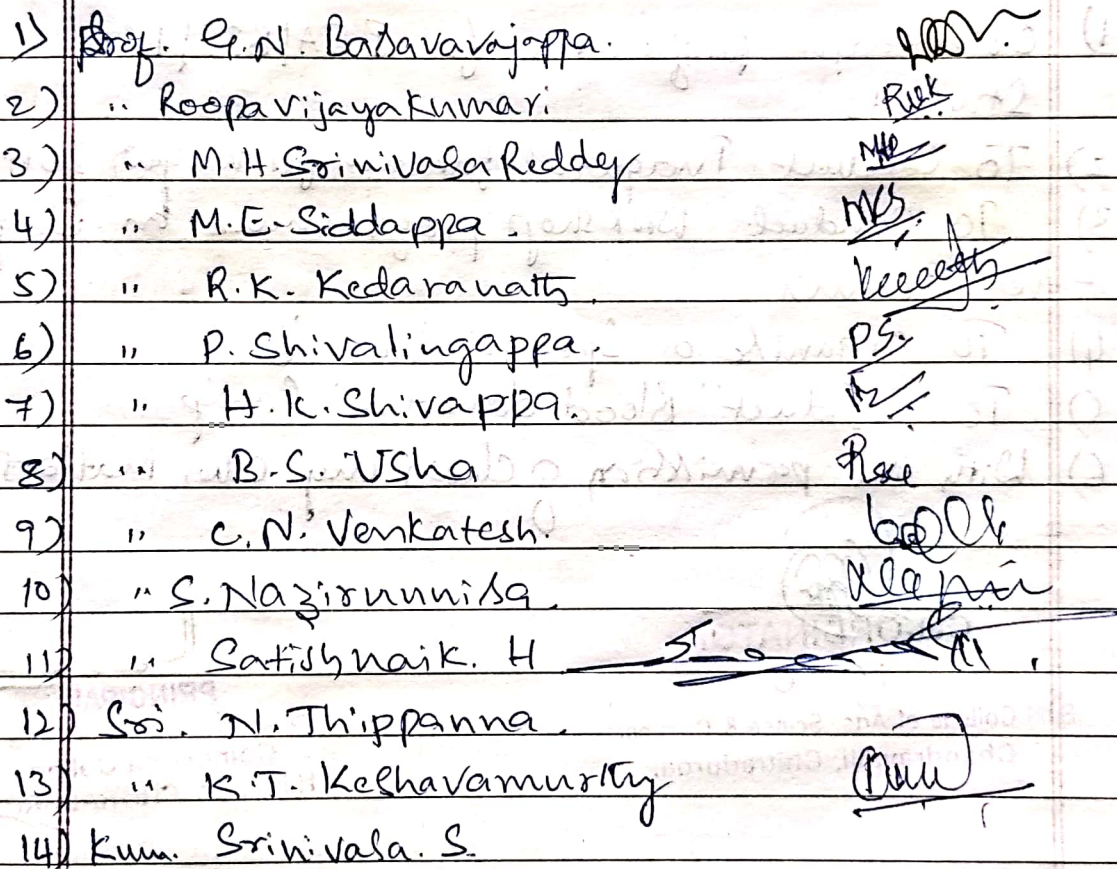 1) Prof. G.N. Basavavajappa.
2) " Roopavijayakumari
3) " M.H Srinivasa Reddy
4) " M.E. Siddappa.
5) " R.K. Kedaranath.
6) " P. Shivalingappa.
7) " H.K. Shivappa.
8) " B.S. Usha
9) " C.N. Venkatesh.
10) " S. Nazirunnisa.
11) " Satish naik. H
12) Sri. N. Thippanna.
13) " K.T. Keshavamurthy
14) Kum. Srinivasa. S.